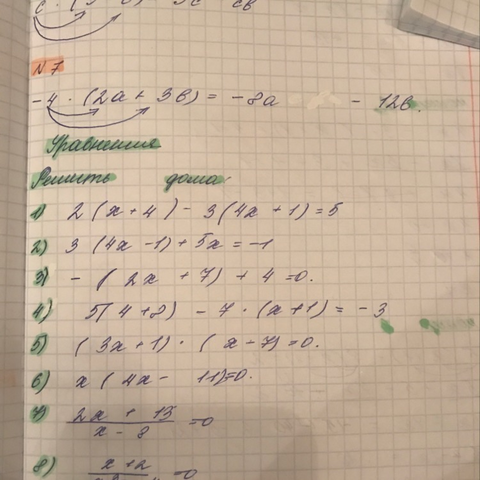 N 7
-4 · (2a + 3b) = -8a - 12b.
Уравнения
Решить дома:
1) 2 (x + 4) - 3 (4x + 1) = 5
2) 3 (4x - 1) + 5x = -1
3) - ( 2x + 7) + 4 = 0.
4) 5( 4 + 8) - 7 · (x + 1) = - 3
5) ( 3x + 1) · ( x - 7) = 0.
6) x ( 4x - 11) = 0.
7) 2x + 15 / x - 8 = 0
8) x + 2